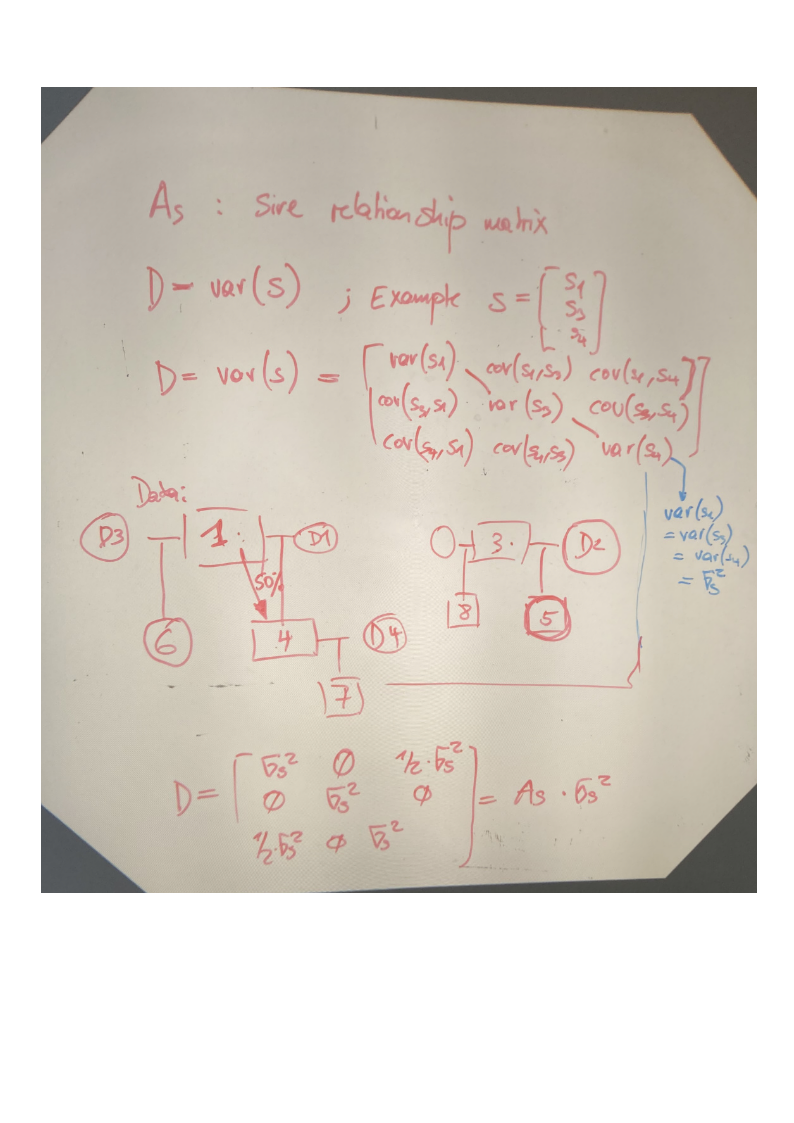 As : Sire relationship matrix
D = var(s) ; Example s = [s1
s3
s4]
D = var(s) = [var(s1) cov(s1,s3) cov(s1,s4)
cov(s3,s1) var(s3) cov(s3,s4)
cov(s4,s1) cov(s4,s3) var(s4)]
var(s1)
= var(s3)
= var(s4)
= σs²
Data:
D3 1. D1 3. D2
50%
6 4 D4 8 5
7
D = [σs² ∅ 1/2·σs²
∅ σs² ∅
1/2·σs² ∅ σs²] = As · σs²